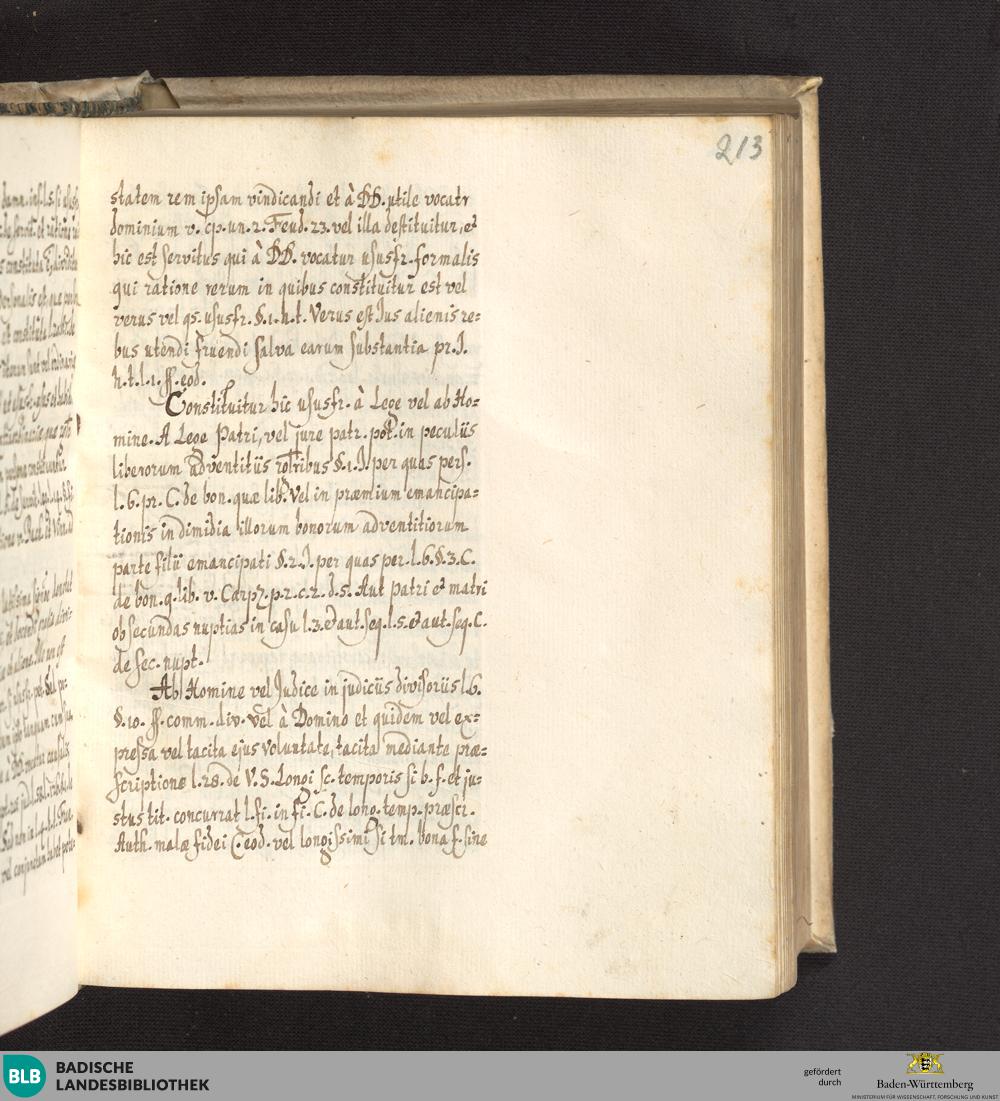 213
statem rem ipsam vindicandi et à DD. utile vocatr
dominium v. cp. un. 2. Feud. 23. vel illa destituitur, et
hic est servitus qui à DD. vocatur ususfr. formalis
qui ratione rerum in quibus constituitur est vel
verus vel qs. ususfr. §. 1. h. t. Verus est Jus alienis re=
bus utendi fruendi salva earum substantia pr. J.
h. t. l. 1. ff. eod.
Constituitur hic ususfr. à Lege vel ab Ho=
mine. A Lege Patri, vel jure patr. pot. in peculiis
liberorum adventitiis §. 1. J. per quas pers.
l. 6. pr. C. de bon. quæ lib. Vel in præmium emancipa=
tionis in dimidia illorum bonorum adventitiorum
parte filii emancipati §. 2. J. per quas per. l. 6. §. 3. C.
de bon. q. lib. v. Carpz. p. 2. c. 2. d. 5. Aut Patri et matri
ob secundas nuptias in casu l. 3. et aut. seq. l. 5. et aut. seq. C.
de sec. nupt.
Ab Homine vel Judice in judiciis divisoriis l. 6.
§. 10. ff. comm. div. vel à Domino et quidem vel ex=
pressa vel tacita ejus voluntate, tacita mediante præ=
scriptione l. 28. de V. S. Longi sc. temporis si b. f. et ju=
stus tit. concurrat l. fi. in fi. C. de long. temp. præscr.
Auth. malæ fidei C. eod. vel longissimi si tm. bona f. sine
BLB
BADISCHE
LANDESBIBLIOTHEK
gefördert
durch
Baden-Württemberg
MINISTERIUM FÜR WISSENSCHAFT, FORSCHUNG UND KUNST